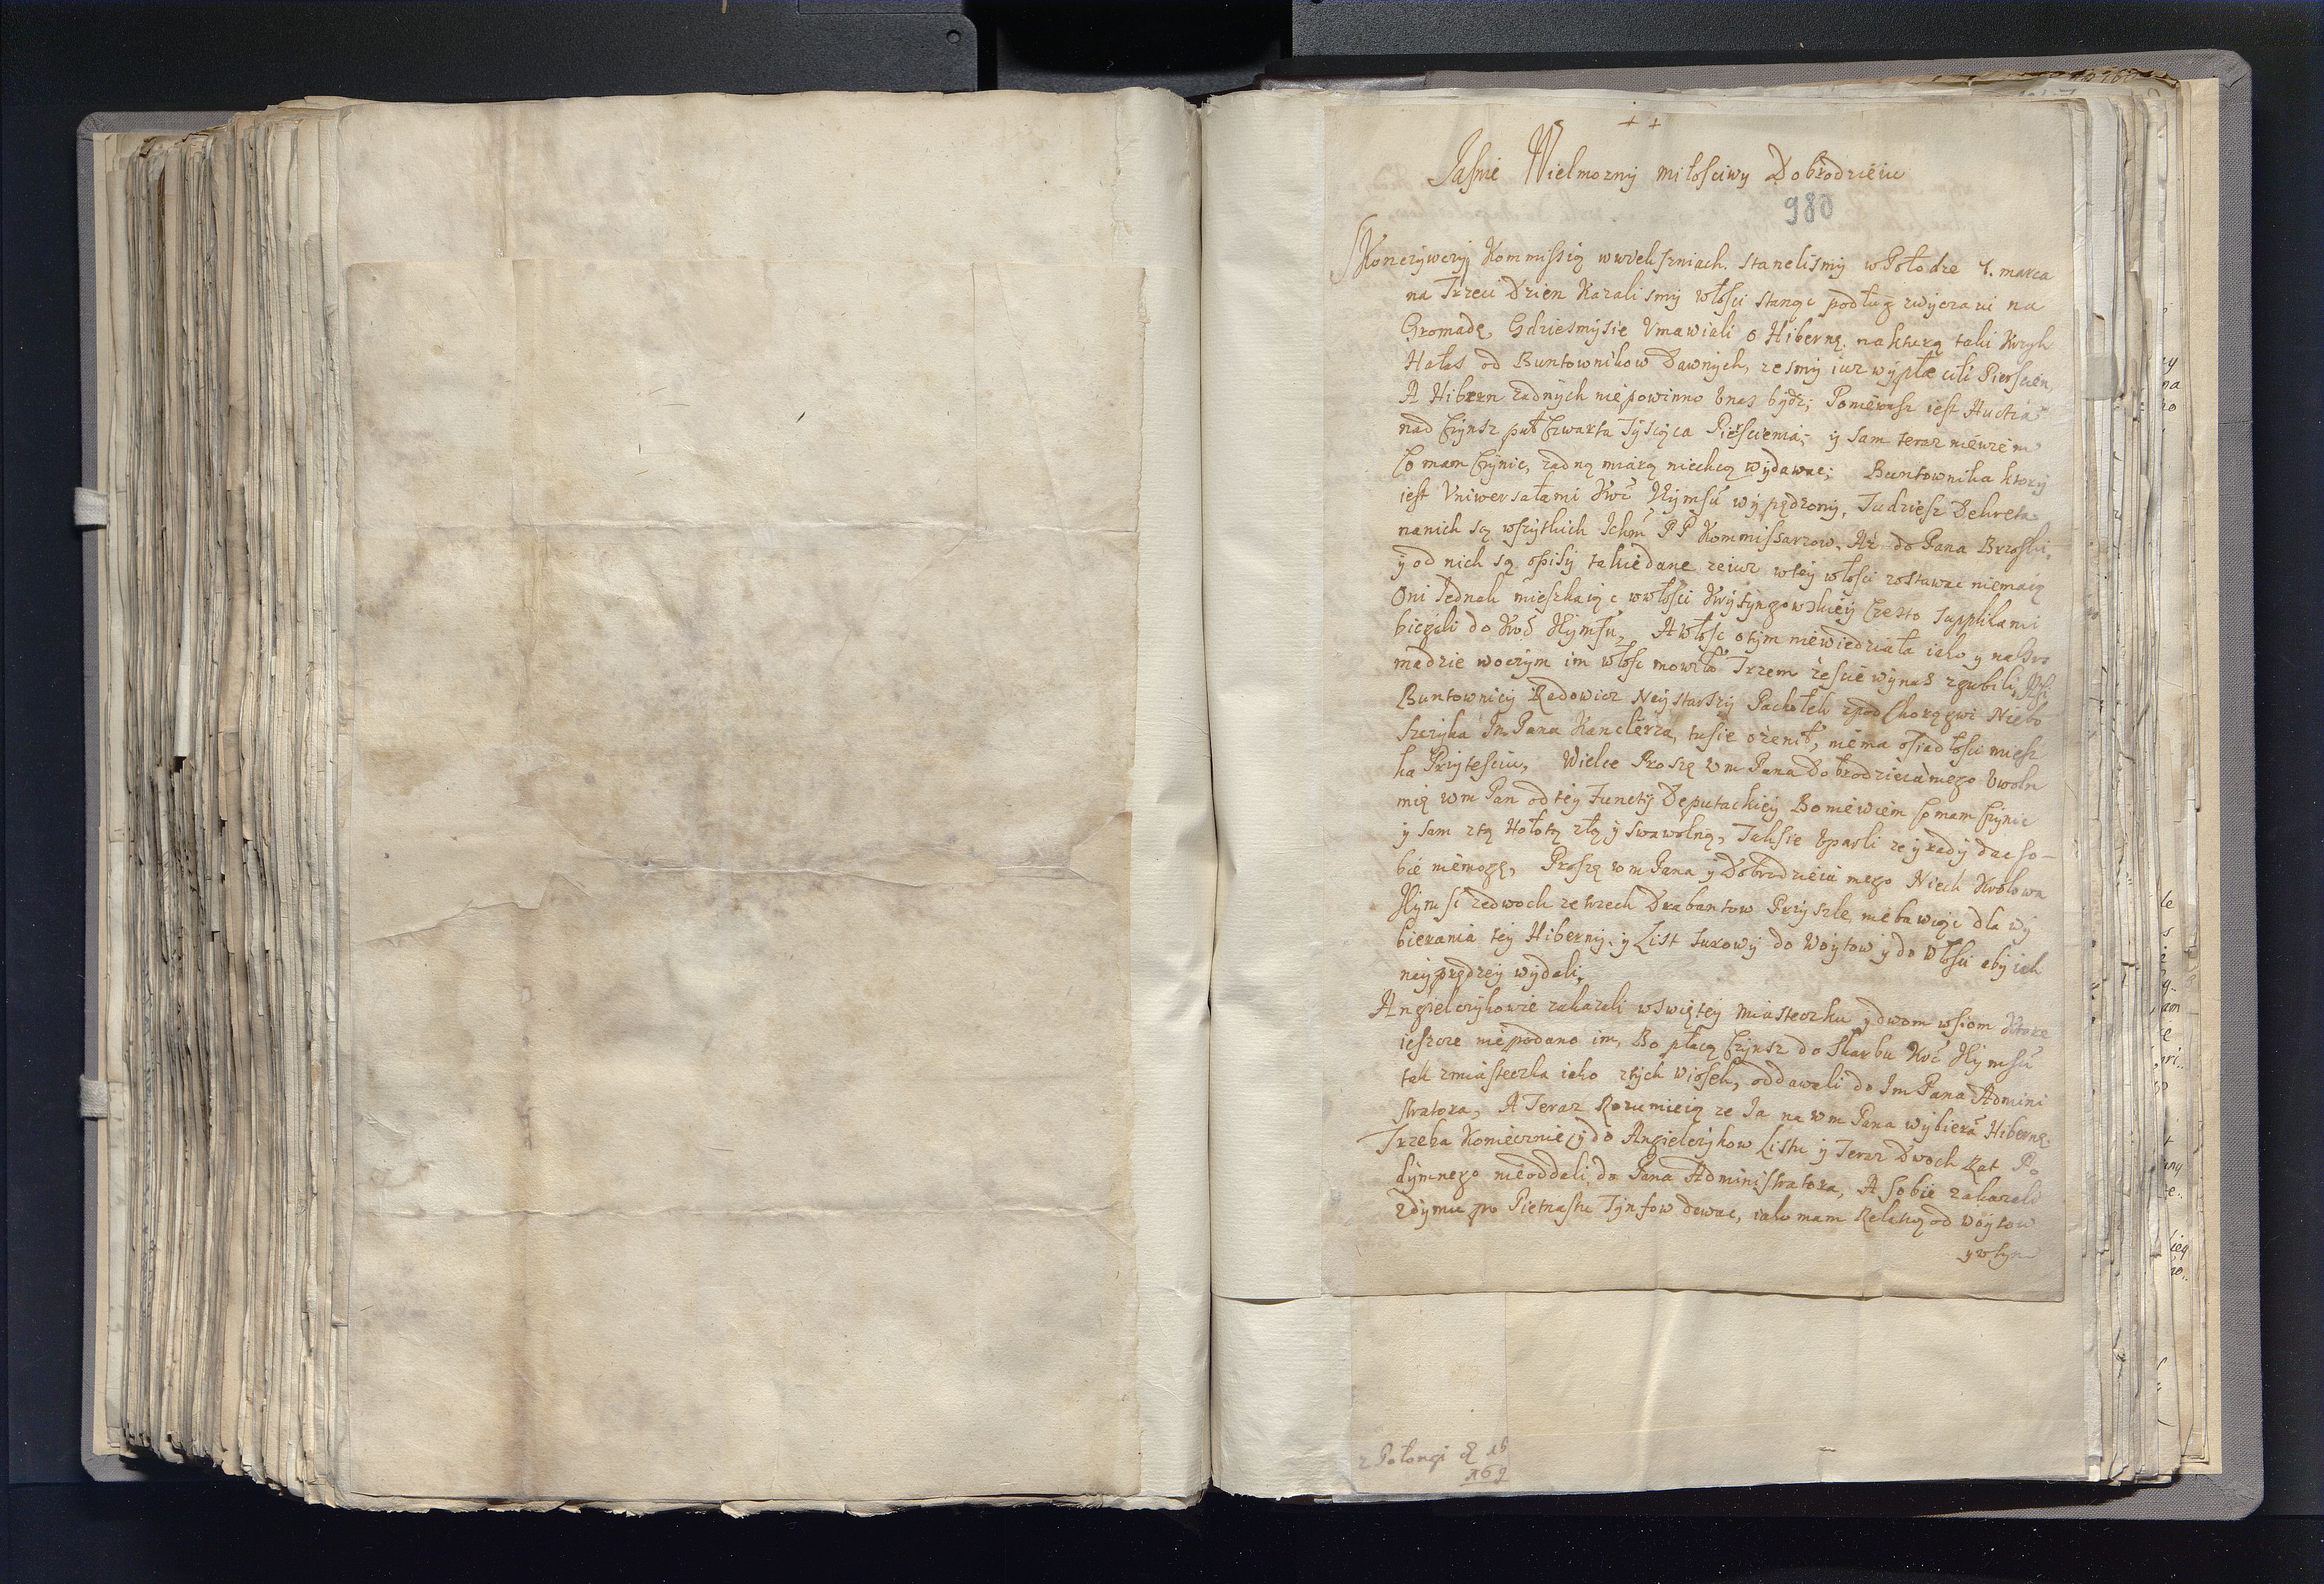 + +
Jasnie Wielmozny miłosciwy Dobrodzieiu
980
Skonczywszy Kommissią w stanelismy w Połądze 1. marca
na Trzeci Dzien Kazalismy włosci stanąc podług zwyczaiu na
Gromadę, Gdziesmysie Vmawiali o Hibernę. naktorą taki Krzyk
Hałas od Buntownikow Dawnych, zesmy iuz wypłacili Pierscien,
A Hibern zadnych niepowinno Vnas bydz; Poniewasz iest Aucta
nad Czynsz puł Czwarta Tysiąca Pierscienia; y sam teraz niewiem
Co mam Czynic, zadną miarą niechcą wydawac; Buntownika ktory
iest Vniwersałami Kro Hymsci wypędzony, Tudziesz Dekreta
nanich są wszytkich Ichm PP Kommissarzow. Az do Pana Brzoski,
y od nich są opisy takiedane zeiuz wtey włosci zostawac niemaią
Oni Jednak mieszkaiąc wwłosci Krytyngowskiey Czesto Supplikami
biegali do Kro Hymsci, A Włosc otym niewiedziała iako y naGro
madzie woczym im włosc mowiła Trzem zescie wynas zgubili,
Buntownicy Radowicz Neystarszy Pachołek zpod Chorągwi Niebo
szczyka Jm Pana Kanclerza, tusie ozenił, niema osiadłosci miesz
ka Przytesciu, Wielce Proszę wm Pana Dobrodzieiamego Vwoln
mię wm Pan od tey Functy Deputackiey Boniewiem Co mam Czynic
y sam ztą Hołotą złą y swawolną, Taksie Vparli ze y rady dac so-
bie niemogę, Proszę wm Pana y Dobrodzieia mego Niech Krolowa
Hymsc zedwoch ze trzech Drabantow Przyszle niebawiąc dla wy
bierania tey Hiberny. y List surowy do Woytow y do Włosci abyiak
nayprędzey wydali,
Angielczykowie zakazali wswiętey miasteczku y dwom wsiom Ktore
ieszcze niepodano im, Bo płacą Czynsz do Skarbu Kro Hymsci
tak zmiasteczka iako ztych wiosek, oddawali do Jm Pana Admini
stratora, A Teraz Rozumieią ze Ja na wm Pana wybieram Hibernę.
Trzeba Koniecznie y do Angielczykow Listu y Teraz Dwoch Rat Po
dymnego nieoddali do Pana Administratora, A sobie zakazali
zdymu po Pietnastu Tynfow dawac, iako mam Relatią od Woytow
y włyn
z Połongi